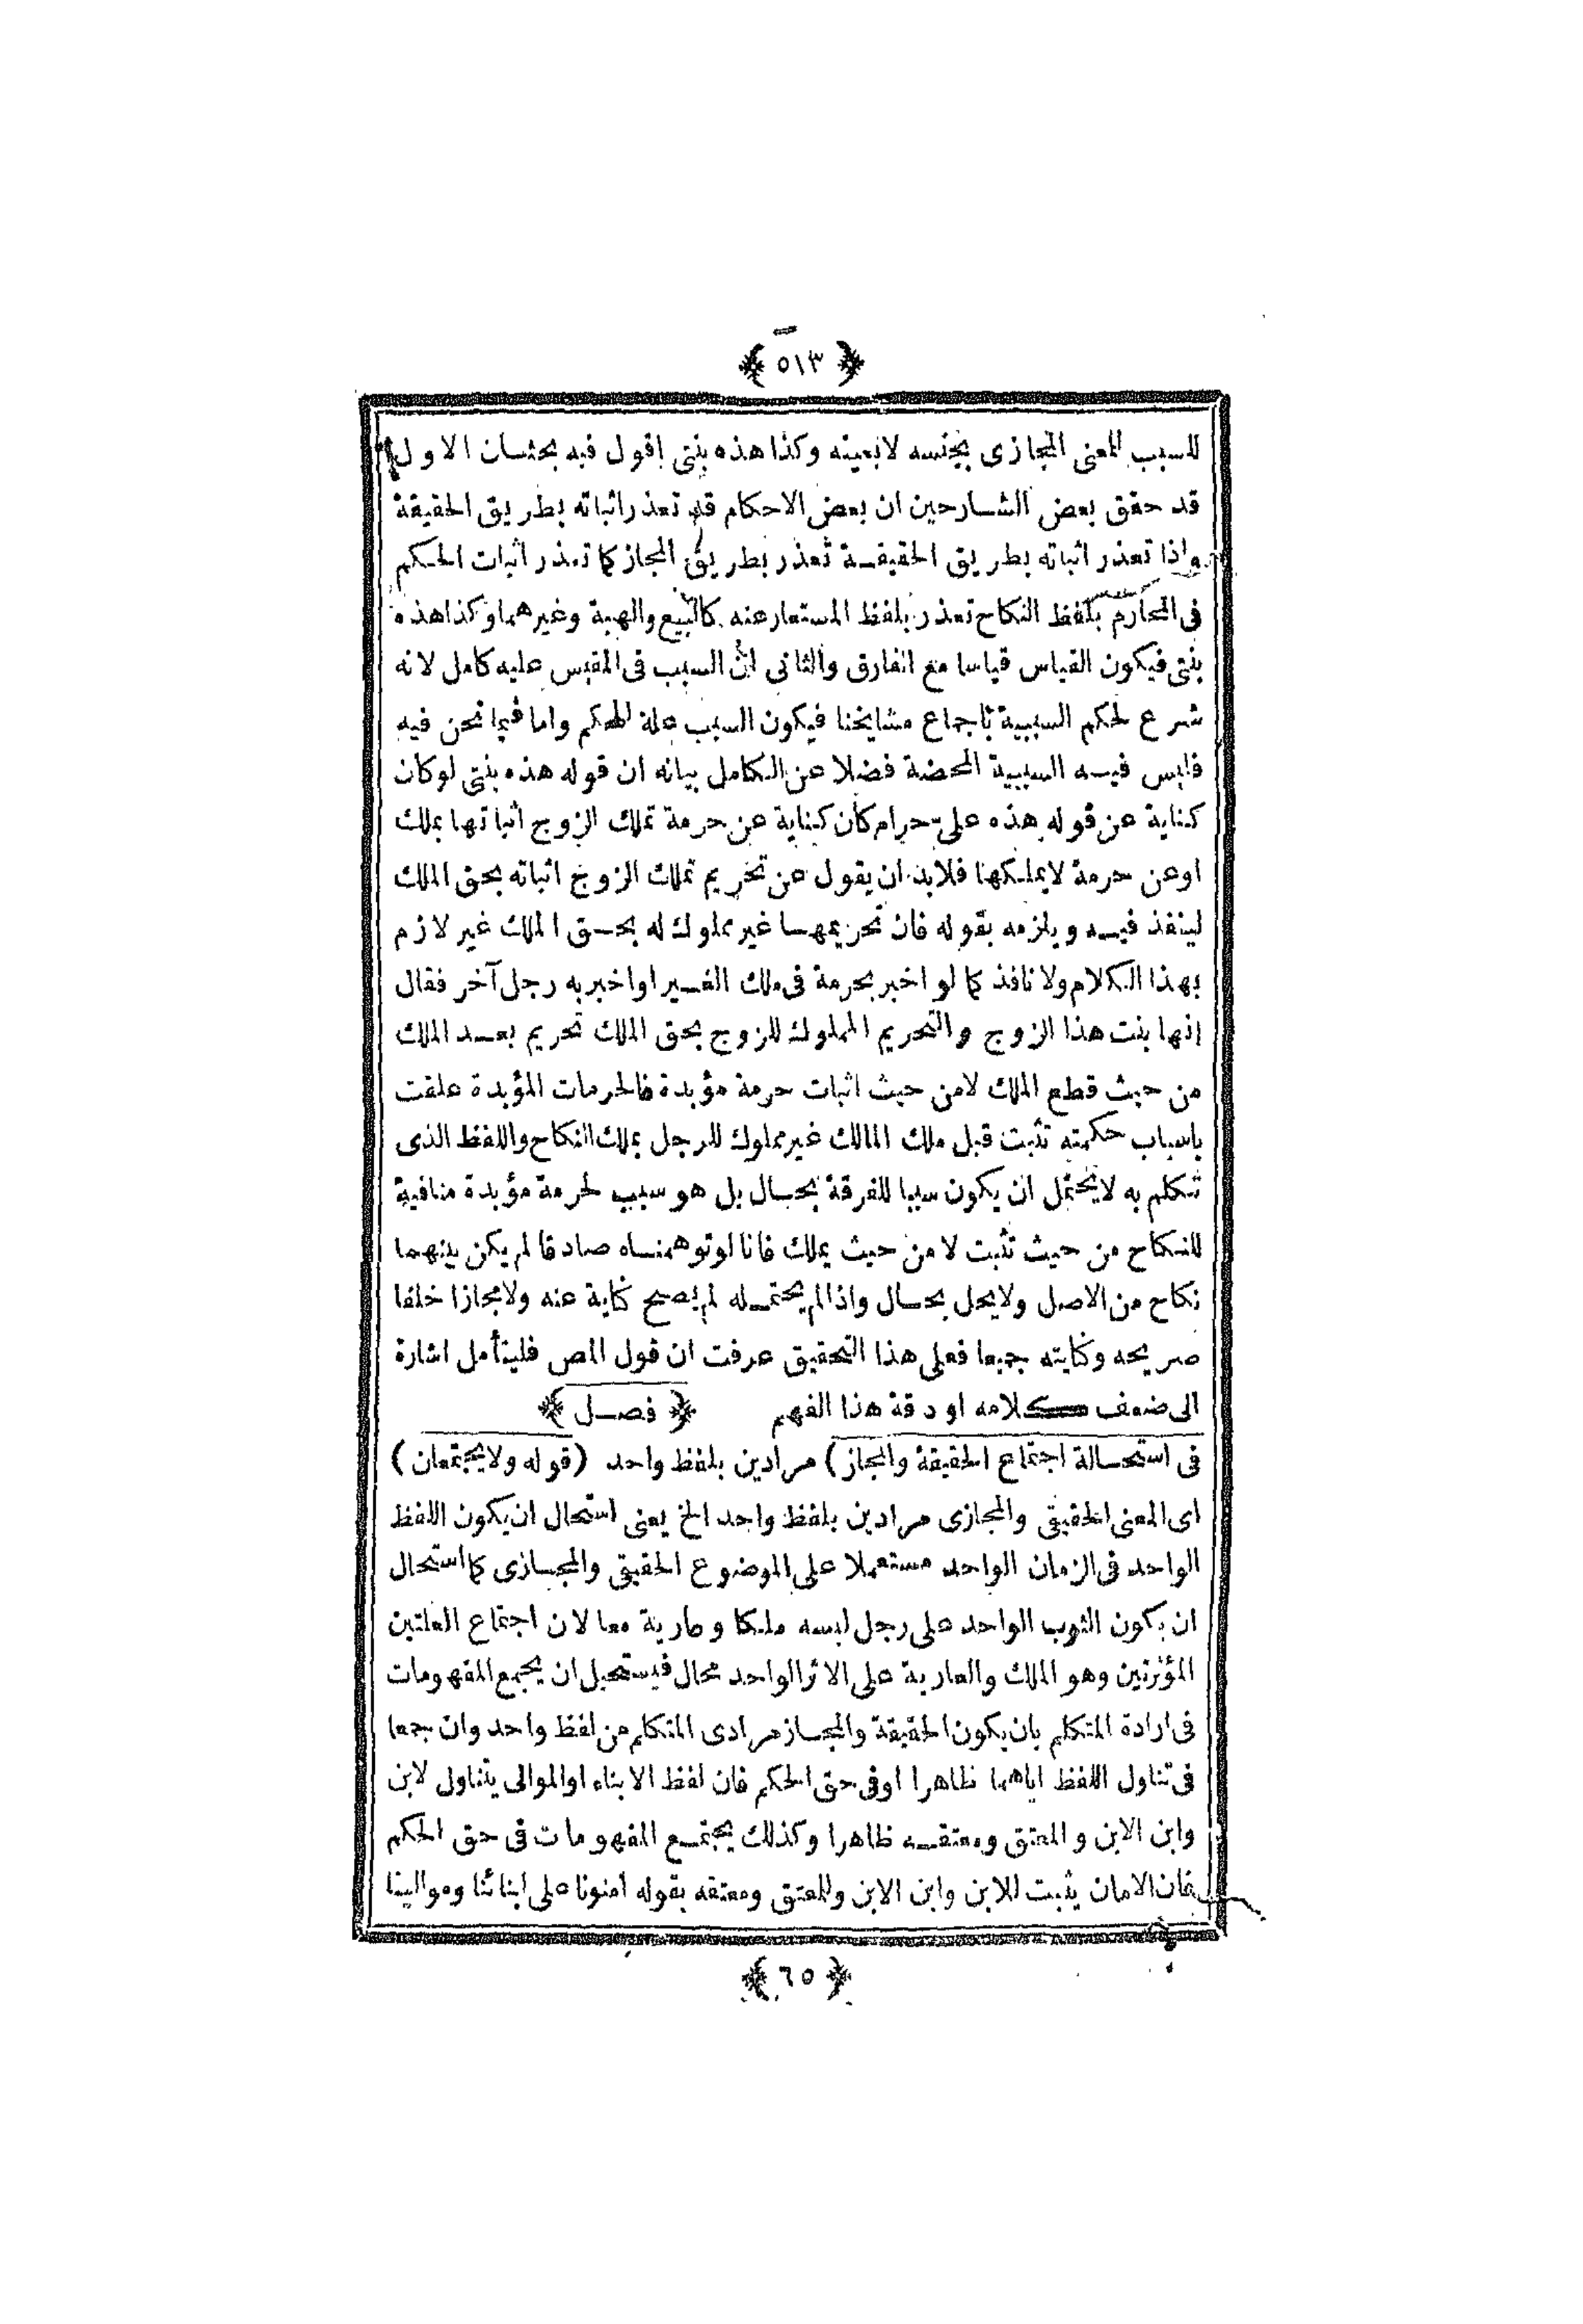 ﴿ ٥١٣ ﴾
للسبب المعنى المجازى بجنسه لابعينه وكذا هذه بنتى اقول فيه بحثان الاول
قد حقق بعض الشارحين ان بعض الاحكام قد تعذر اثباته بطريق الحقيقة
واذا تعذر اثباته بطريق الحقيقة تعذر بطريق المجاز كما تعذر اثبات الحكم
فى المحارم بلفظ النكاح تعذر بلفظ المستعار عنه كالبيع والهبة وغيرهما وكذا هذه
بنتى فيكون القياس قياسا مع الفارق والثانى ان السبب فى المقيس عليه كامل لانه
شرع لحكم السببية باجماع مشايخنا فيكون السبب علة للحكم واما فيما نحن فيه
فليس فيه السببية المحضة فضلا عن الكامل بيانه ان قوله هذه بنتى لوكان
كناية عن قوله هذه على حرام كان كناية عن حرمة تملك الزوج اثباتها بملك
اوعن حرمة لايملكها فلابد ان يقول عن تحريم تملك الزوج اثباته بحق الملك
لينفذ فيه ويلزمه بقوله فان تحريمها غير مملوك له بحق الملك غير لازم
بهذا الكلام ولا نافذ كما لو اخبر بحرمة فى ملك الغير او اخبر به رجل آخر فقال
انها بنت هذا الزوج والتحريم المملوك للزوج بحق الملك تحريم بعد الملك
من حيث قطع الملك لامن حيث اثبات حرمة مؤبدة فالحرمات المؤبدة علقت
باسباب حكمته تثبت قبل ملك المالك غير مملوك للرجل بملك النكاح واللفظ الذى
تتكلم به لايحتمل ان يكون سببا للفرقة بحال بل هو سبب لحرمة مؤبدة منافية
للنكاح من حيث تثبت لا من حيث يملك فانا لو توهمناه صادقا لم يكن بينهما
نكاح من الاصل ولايحل بحال واذا لم يحتمله لم يصح كناية عنه ولامجازا خلفا
صريحه وكنايته جميعا فعلى هذا التحقيق عرفت ان قول المص فليتأمل اشارة
الى ضعف كلامه او دقة هذا الفهم ﴿ فصل ﴾
فى استحالة اجتماع الحقيقة والمجاز ) مرادين بلفظ واحد ( قوله ولايجتمعان )
اى المعنى الحقيقى والمجازى مرادين بلفظ واحد الخ يعنى استحال ان يكون اللفظ
الواحد فى الزمان الواحد مستعملا على الموضوع الحقيقى والمجازى كما استحال
ان يكون الثوب الواحد على رجل لبسه ملكا وعارية معا لان اجتماع العلتين
المؤثرتين وهو الملك والعارية على الاثر الواحد محال فيستحيل ان يجمع المفهومات
فى ارادة المتكلم بان يكون الحقيقة والمجاز مرادى المتكلم من لفظ واحد وان جمعا
فى تناول اللفظ اياهما ظاهرا اوفى حق الحكم فان لفظ الابناء اوالموالى يتناول لابن
وابن الابن والمعتق ومعتقه ظاهرا وكذلك يجتمع المفهومات فى حق الحكم
فان الامان يثبت للابن وابن الابن وللمعتق ومعتقه بقوله امنونا على ابنائنا وموالينا
﴿ ٦٥ ﴾